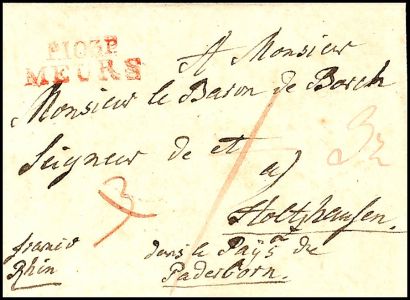 P103P
MEURS
A Monsieur
Monsieur le Baron de Borch
Seigneur de et
a)
Holtzhausen.
franco
Rhin
dans le Paÿs de
Paderborn.
3
32